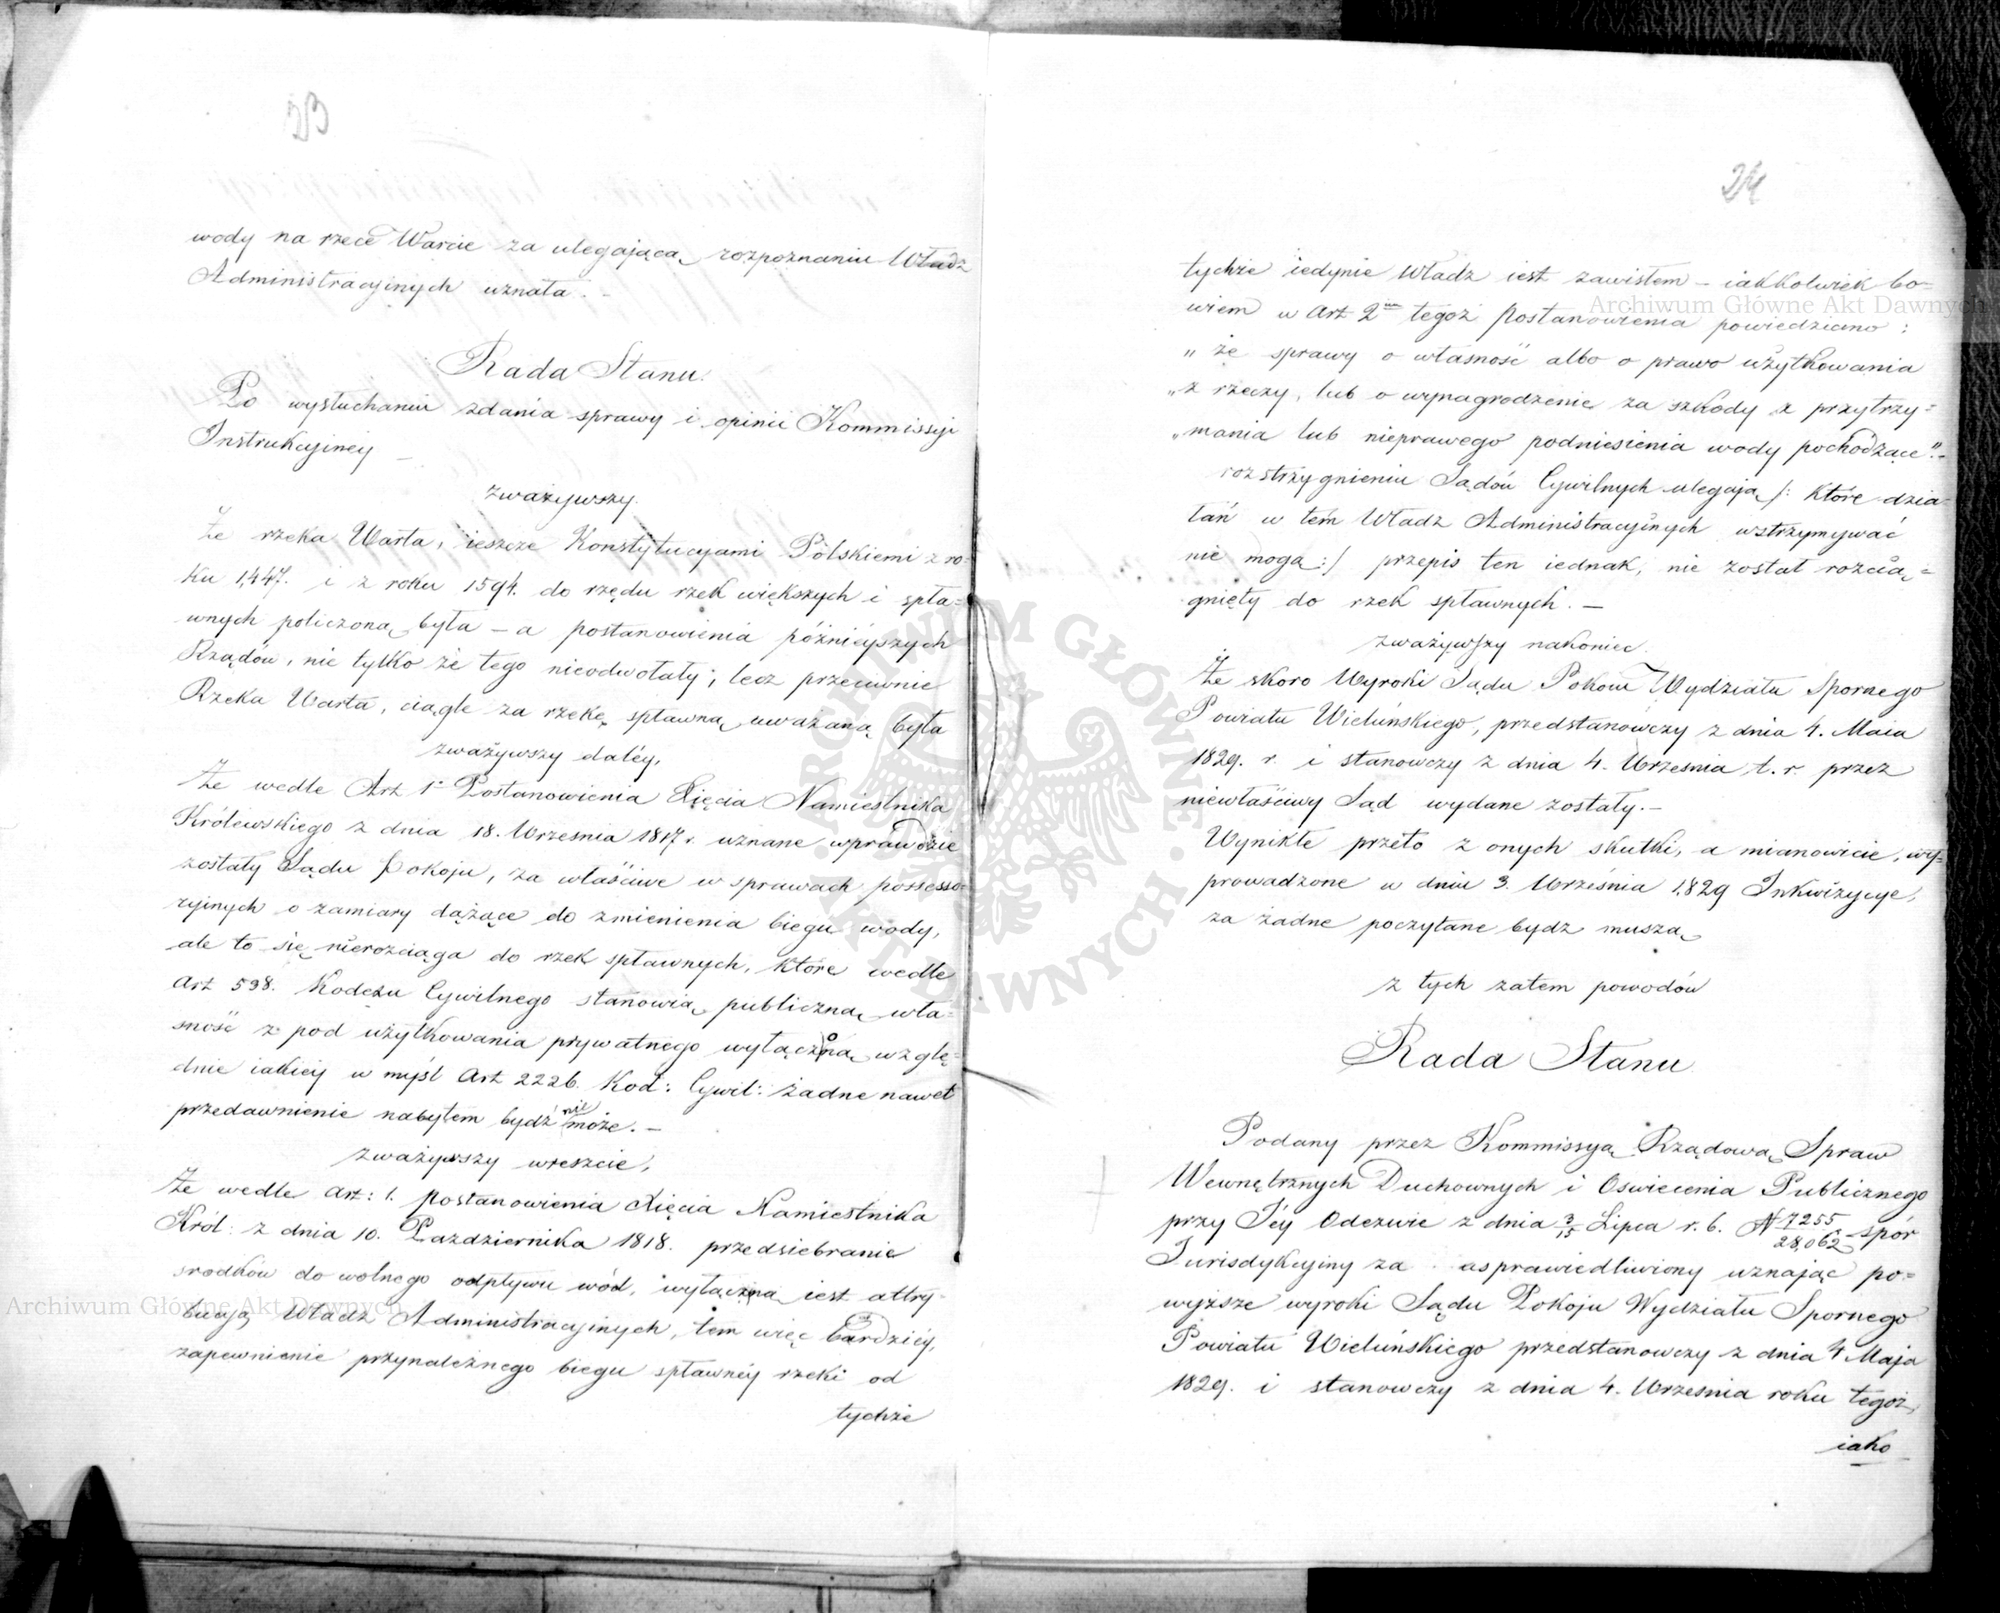 23
wody na rzece Warcie za ulegającą rozpoznaniu Władz
Administracyjnych uznała. –
Rada Stanu.
Po wysłuchaniu zdania sprawy i opinii Kommissyi
Instrukcyjney –
zważywszy.
że rzeka Warta, ieszcze Konstytucyami Polskiemi z ro-
ku 1,447. i z roku 1594. do rzędu rzek większych i spła=
wnych policzoną była – a postanowienia późnieyszych
Rządów, nie tylko że tego nieodwołały; lecz przeciwnie
Rzeka Warta, ciągle za rzekę spławną uważaną była
zważywszy daléy,
Że wedle Art 1º Postanowienia Xięcia Namiestnika
Królewskiego z dnia 18. Września 1817 r. uznane wprawdzie
zostały Sądu pokoju, za właściwe w sprawach possesso-
ryjnych o zamiary dążące do zmienienia biegu wody,
ale to się nierozciąga do rzek spławnych, które wedle
Art 538. Kodexu Cywilnego stanowią publiczną wła=
sność z pod użytkowania prywatnego wyłączoną wzglę=
dnie iakiéy w myśl Art 2226. Kod: Cywil: żadne nawet
przedawnienie nabytem bydź nie może. –
zważywszy wreszcie,
że wedle Art: 1. postanowienia Xięcia Namiestnika
Król: z dnia 10. Października 1818. przedsiebranie
srodków do wolnego odpływu wód, wyłączną iest attry-
bucyą Władz Administracyjnych, tem więc bardziéy,
zapewnienie przynależnego biegu spławnéy rzeki od
tychże
24
tychże iedynie Władz iest zawisłem – iakkolwiek bo=
wiem w Art 2im tegoż Postanowienia powiedziano:
„ że sprawy o własność albo o prawo użytkowania
„z rzeczy, lub o wynagrodzenie za szkody z przytrzy=
„mania lub nieprawego podniesienia wody pochodzące". –
rozstrzygnieniu Sądów Cywilnych ulegają /: które dzia-
łań w tém Władz Administracyjnych wstrzymywać
nie mogą :/ przepis ten iednak, nie został rozcią=
gnięty do rzek spławnych. –
zważywszy nakoniec.
Że skoro Wyroki Sądu Pokoiu Wydziału Spornego
Powiatu Wieluńskiego, przedstanowczy z dnia 4. Maia
1829. r. i stanowczy z dnia 4. Września t. r. przez
niewłaściwy Sąd wydane zostały. –
Wynikłe przeto z onych skutki, a mianowicie, wy-
prowadzone w dniu 3. Września 1829 Inkwizycye,
za żadne poczytane bydz muszą
z tych zatem powodów
Rada Stanu.
Podany przez Kommissyą Rządową Spraw
Wewnętrznych Duchownych i Oswiecenia Publicznego
przy Jéy Odezwie z dnia 3/15 Lipca r. b. N 7255/28,062 spór
Jurisdykcyjny za usprawiedliwiony uznając po=
wyższe wyroki Sądu Pokoju Wydziału Spornego
Powiatu Wieluńskiego przedstanowczy z dnia 4 Maja
1829. i stanowczy z dnia 4. Września roku tegoż,
iako
Archiwum Główne Akt Dawnych
Archiwum Główne Akt Dawnych
ARCHIWUM GŁÓWNE · AKT DAWNYCH ·